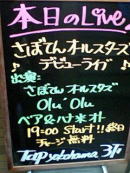 本日のLive!
さぼてんオルスターズ
♪デビューライブ♪
出演:
さぼてんオルスターズ
Olu' Olu'
ペア&付け米オト
19:00 Start!! 終日
チャージ無料